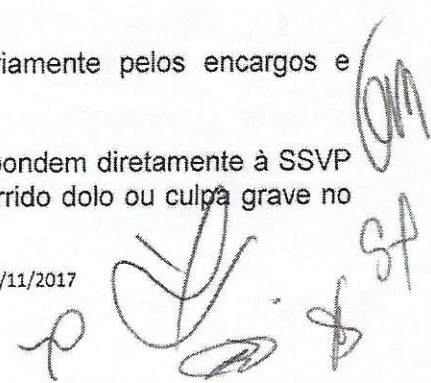 riamente pelos encargos e
pondem diretamente à SSVP
rrido dolo ou culpa grave no
/11/2017